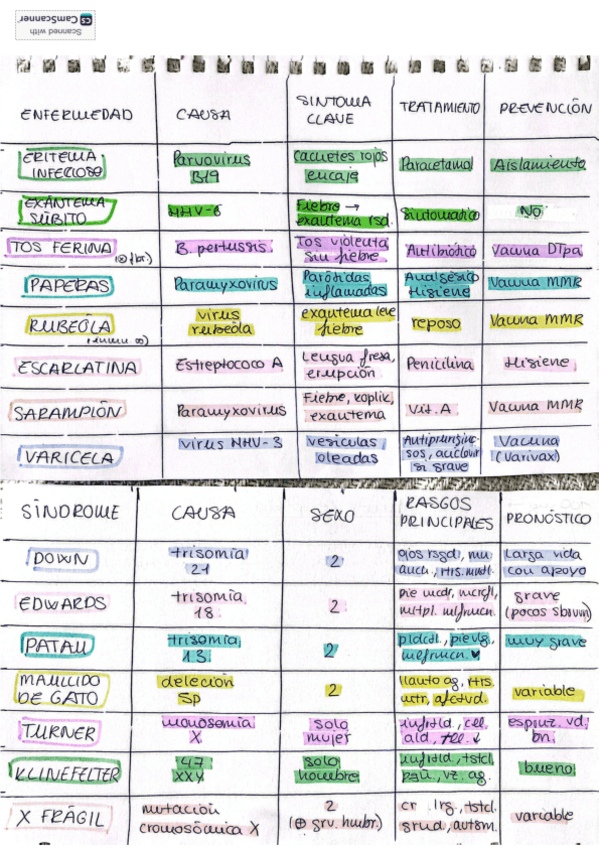 Scanned with
CS CamScanner
ENFERMEDAD CAUSA SÍNTOMA CLAVE TRATAMIENTO PREVENCIÓN
ERITEMA INFECCIOSO Parvovirus B19 cachetes rojos encaje Paracetamol Aislamiento
EXANTEMA SÚBITO HHV-6 Fiebre → exantema rsd. Sintomático NO
TOS FERINA B. pertussis Tos violenta sin fiebre Antibiótico Vacuna DTpa
PAPERAS Paramyxovirus Parótidas inflamadas Analgésico Higiene Vacuna MMR
RUBEOLA virus rubeola exantema leve fiebre reposo Vacuna MMR
ESCARLATINA Estreptococo A Lengua fresa, erupción Penicilina Higiene
SARAMPIÓN Paramyxovirus Fiebre, koplik, exantema Vit. A Vacuna MMR
VARICELA virus HHV-3 vesículas oleadas Antipruriginosos, aciclovir si grave Vacuna (varivax)
SÍNDROME CAUSA SEXO RASGOS PRINCIPALES PRONÓSTICO
DOWN trisomía 21 2 ojos rsgd., Larga vida con apoyo
EDWARDS trisomía 18 2 grave (pocos
PATAU trisomía 13 2 muy grave
MAULLIDO DE GATO deleción 5p 2 llanto ag, variable
TURNER monosomía X solo mujer
KLINEFELTER 47 XXY solo hombre bueno
X FRÁGIL mutación cromosómica X 2 cr lrg, tstcl. grnd., autsm. variable